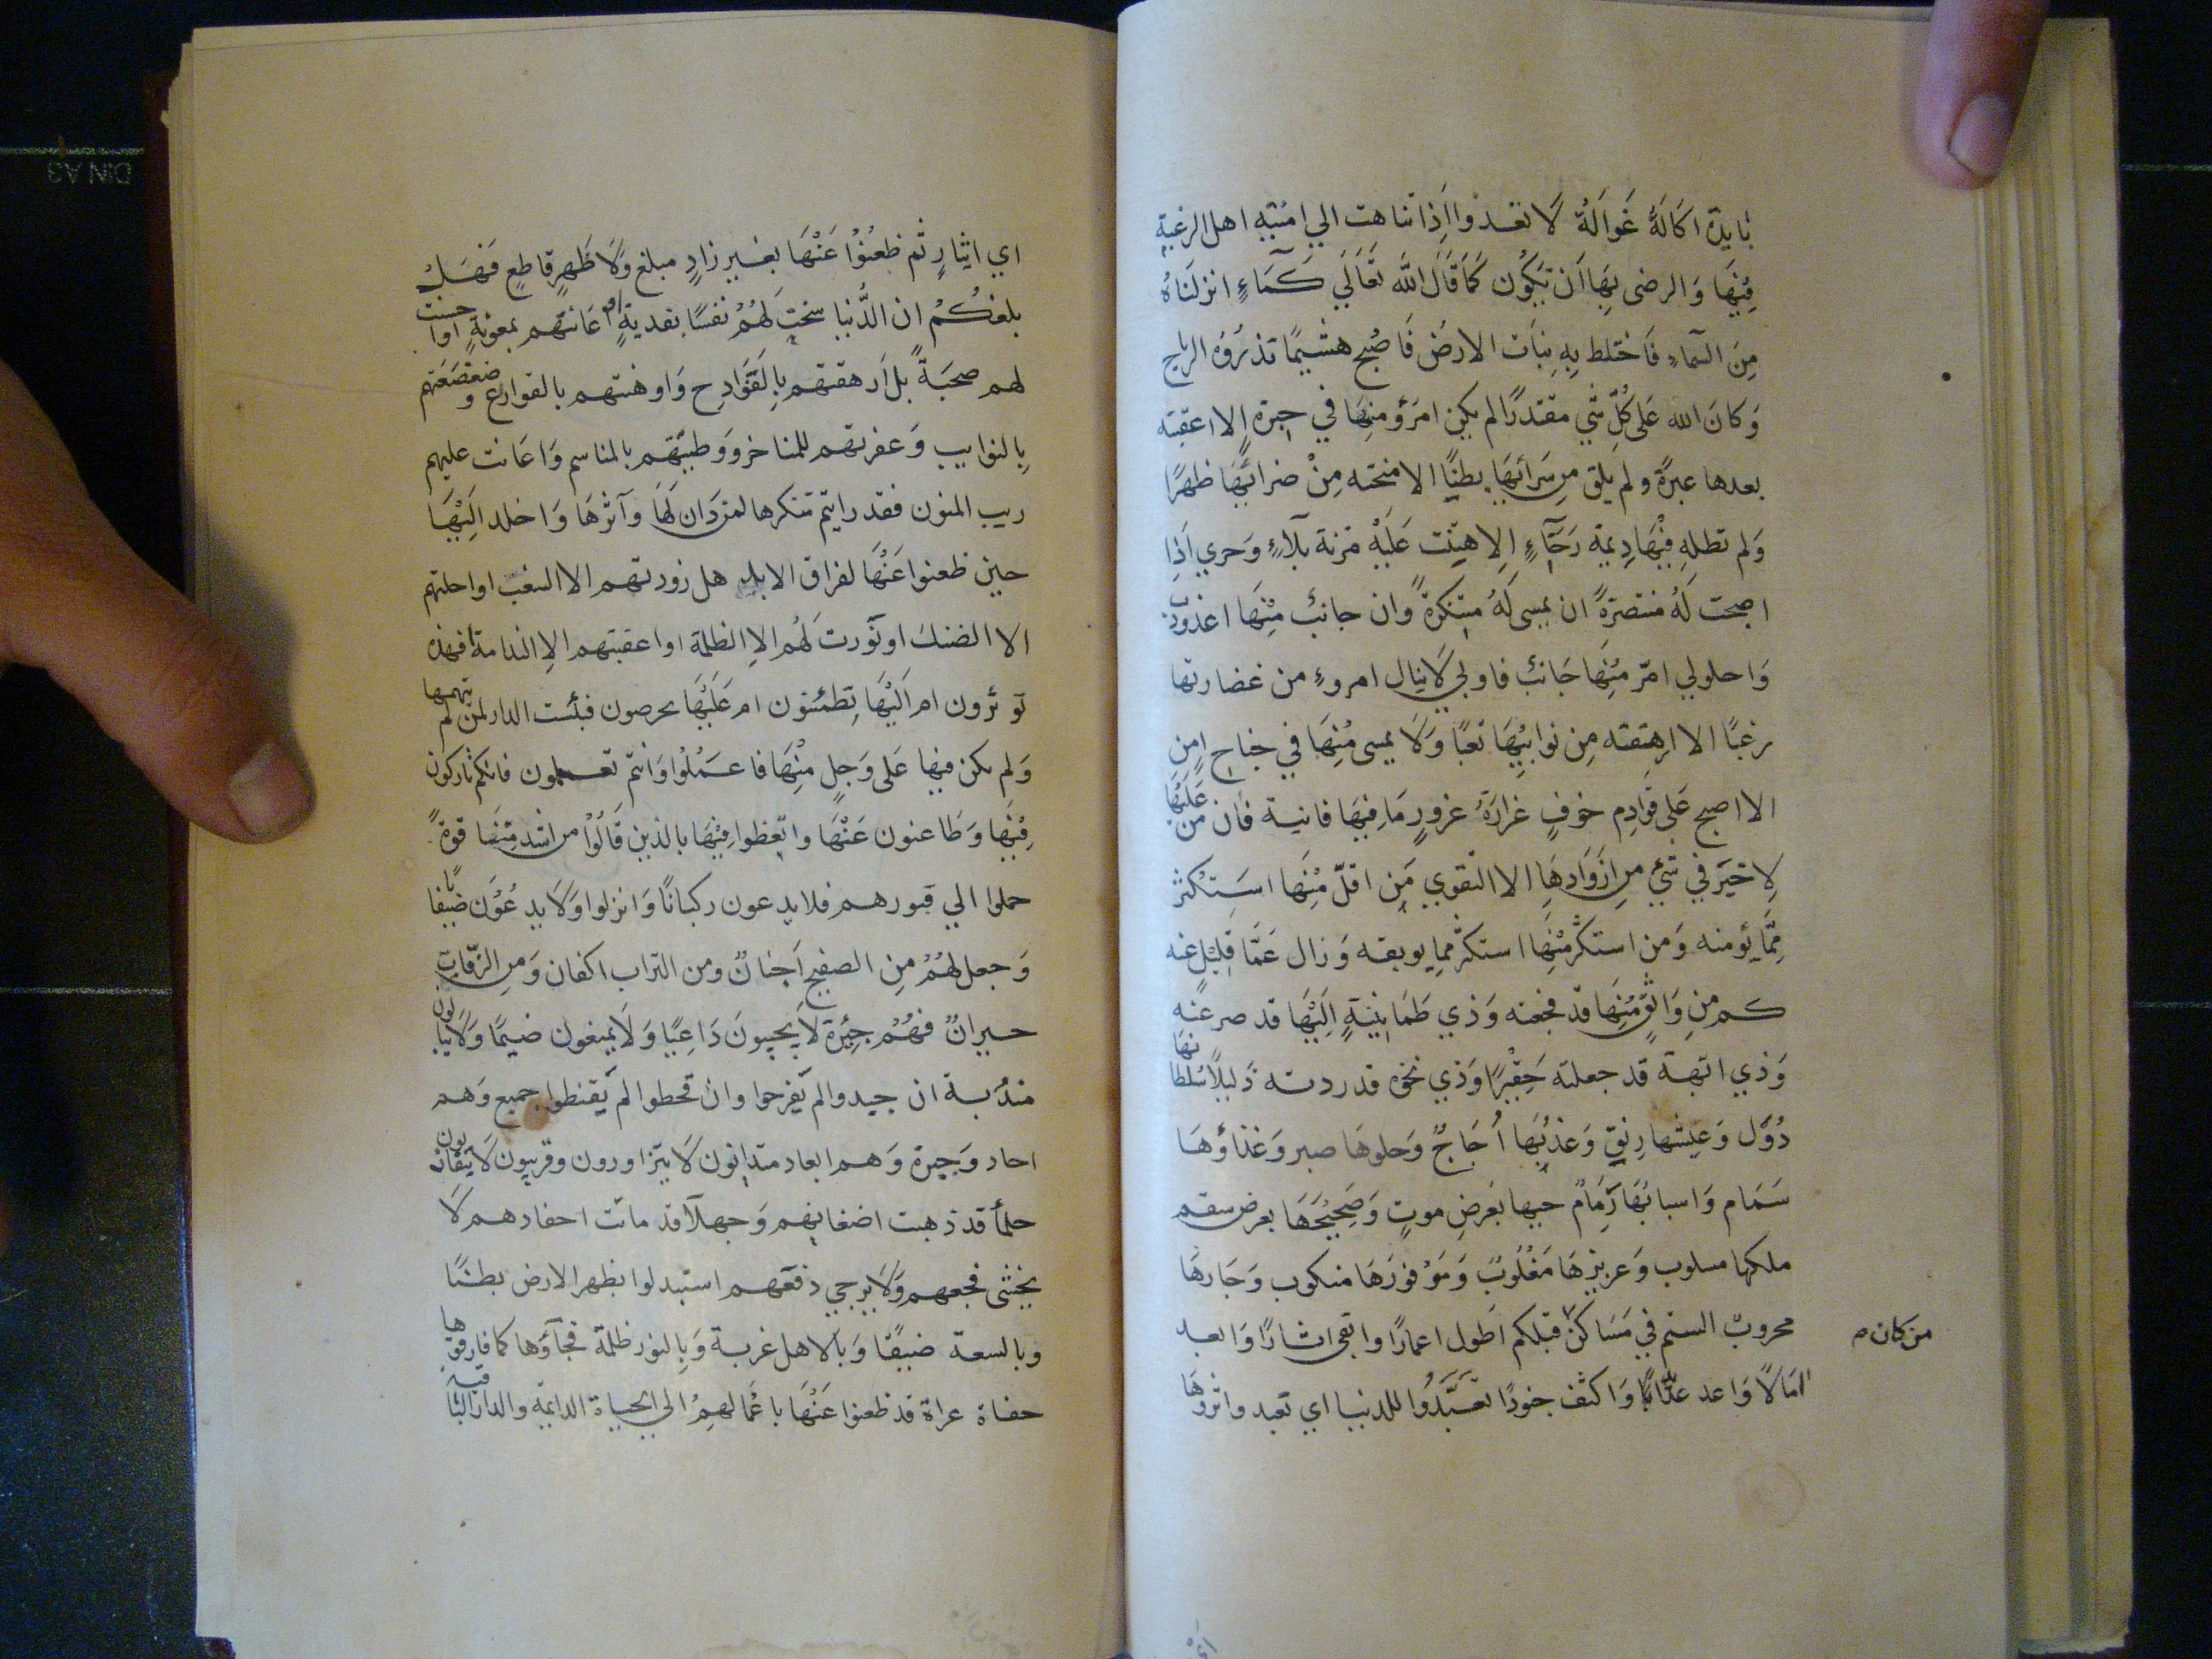 بايدة اكالة غوالة لا تعدوا اذا تناهت الي امنية اهل الرغبة
فيها والرضى بها ان تكون كما قال الله تعالي كماء انزلناه
من السماء فاختلط به نبات الارض فاصبح هشيما تذروه الرياح
وكان الله على كل شي مقتدرا لم يكن امرؤ منها في حبرة الا اعقبته
بعدها عبرة ولم يلق من سرائها بطنا الا منحته من ضرائها ظهرا
ولم تطله فيها ديمة رخاء الا هتنت عليه مزنة بلاء وحري اذا
اصبحت له منتصرة ان يمسي له متنكرة وان جانب منها اعذوذب
واحلولي امر منها جانب فاوبي لا ينال امروء من غضارتها
رغبا الا ارهقته من نوايبها تعبا ولا يمسي منها في جناح امن
الا اصبح على قوادم خوف غرارة غرور ما فيها فانية فان من عليها
لا خير في شئ من ازوادها الا التقوي من اقل منها استكثر
مما يؤمنه ومن استكثر منها استكثر مما يوبقه وزال عما قليل عنه
كم من واثق منها قد فجعته وذي طمانينة اليها قد صرعته
وذي ابهة قد جعلته حقيرا وذي نخوة قد ردته ذليلا سلطانها
دول وعيشها رنق وعذبها اجاج وحلوها صبر وغذاؤها
سمام واسبابها رمام حيها بعرض موت وصحيحها بعرض سقم
ملكها مسلوب وعزيزها مغلوب وموفورها منكوب وجارها
محروب الستم في مساكن قبلكم اطول اعمارا وابقى اثارا وابعد
من كان م
امالا واعد عديدا واكثف جنودا تعبدوا للدنيا اي تعبد واثروها
اي ايثار ثم ظعنوا عنها بغير زاد مبلغ ولا ظهر قاطع فهل
بلغكم ان الدنيا سخت لهم نفسا بفدية او اعانتهم بمعونة او احسنت
لهم صحبة بل ارهقتهم بالقوادح واوهنتهم بالقوارع وضعضعتهم
بالنوايب وعفرتهم للمناخر ووطيتهم بالمناسم واعانت عليهم
ريب المنون فقد رايتم تنكرها لمن دان لها وآثرها واخلد اليها
حين ظعنوا عنها لفراق الابد هل زودتهم الا السغب او احلتهم
الا الضنك او نورت لهم الا الظلمة او اعقبتهم الا الندامة افهذه
تؤثرون ام اليها تطمئنون ام عليها تحرصون فبئست الدار لمن لم يتهمها
ولم يكن فيها على وجل منها فاعملوا وانتم تعلمون فانكم تاركون
فيها وظاعنون عنها واتعظوا فيها بالذين قالوا من اشد منها قوة
حملوا الي قبورهم فلا يدعون ركبانا وانزلوا ولا يدعون ضيفانا
وجعل لهم من الصفيح اجنان ومن التراب اكفان ومن الرفات
جيران فهم جيرة لا يجيبون داعيا ولا يمنعون ضيما ولا يبالون
مندبة ان جيدوا لم يفرحوا وان قحطوا لم يقنطوا جميع وهم
احاد وجيرة وهم ابعاد متدانون لا يتزاورون وقريبون لا يتقاربون
حلما قد ذهبت اضغانهم وجهلا قد ماتت احقادهم لا
يخشى فجعهم ولا يرجي دفعهم استبدلوا بظهر الارض بطنا
وبالسعة ضيقا وبالاهل غربة وبالنور ظلمة فجآؤها كما فارقوها
حفاة عراة قد ظعنوا عنها باعمالهم الي الحياة الدايمة والدار الباقية